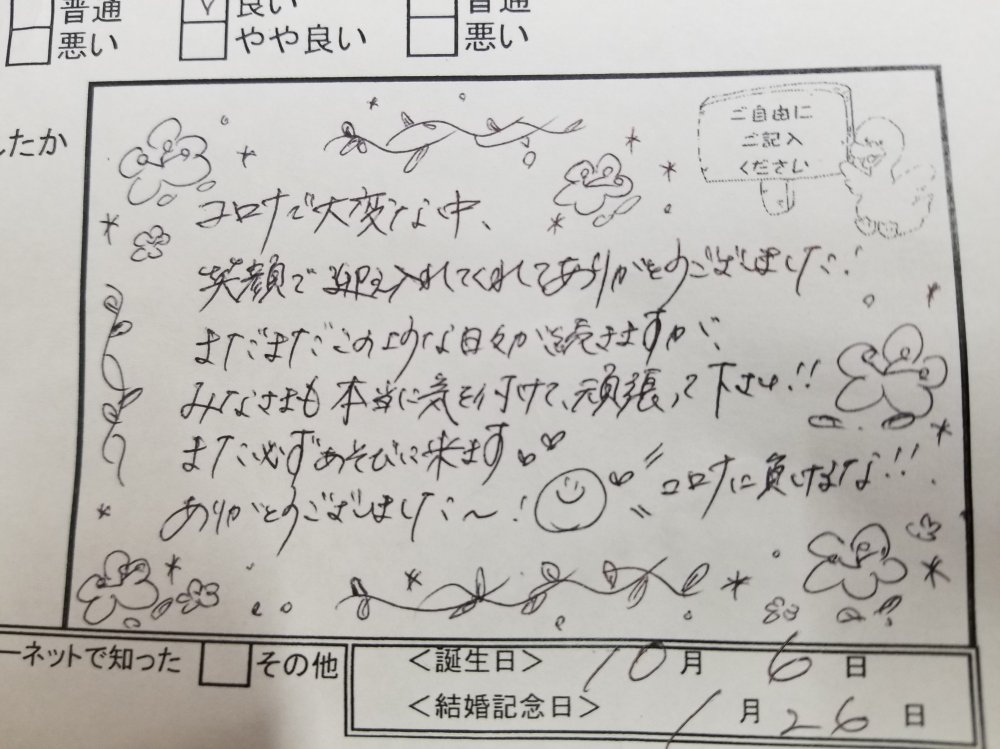 普通
悪い
良い
やや良い
普通
悪い
したか
ご自由に
ご記入
ください
コロナで大変な中、
笑顔で迎え入れてくれてありがとうございました!
まだまだこのような日々が続きますが、
みなさまも本当に気を付けて、頑張って下さい!!
また必ずあそびに来ます
ありがとうございました〜!
コロナに負けるな!!
ーネットで知った
その他
<誕生日> 10月 6日
<結婚記念日> 1月 26日